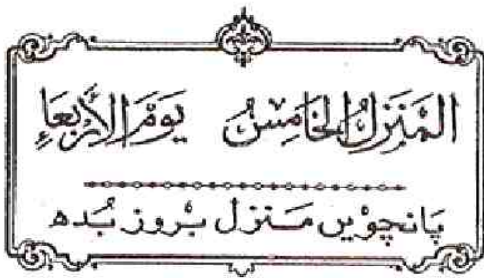 المَنزِلُ الخَامِسُ يَومَ الأَربَعَاءِ
پَانچوِیں مَنزل بروز بُدھ